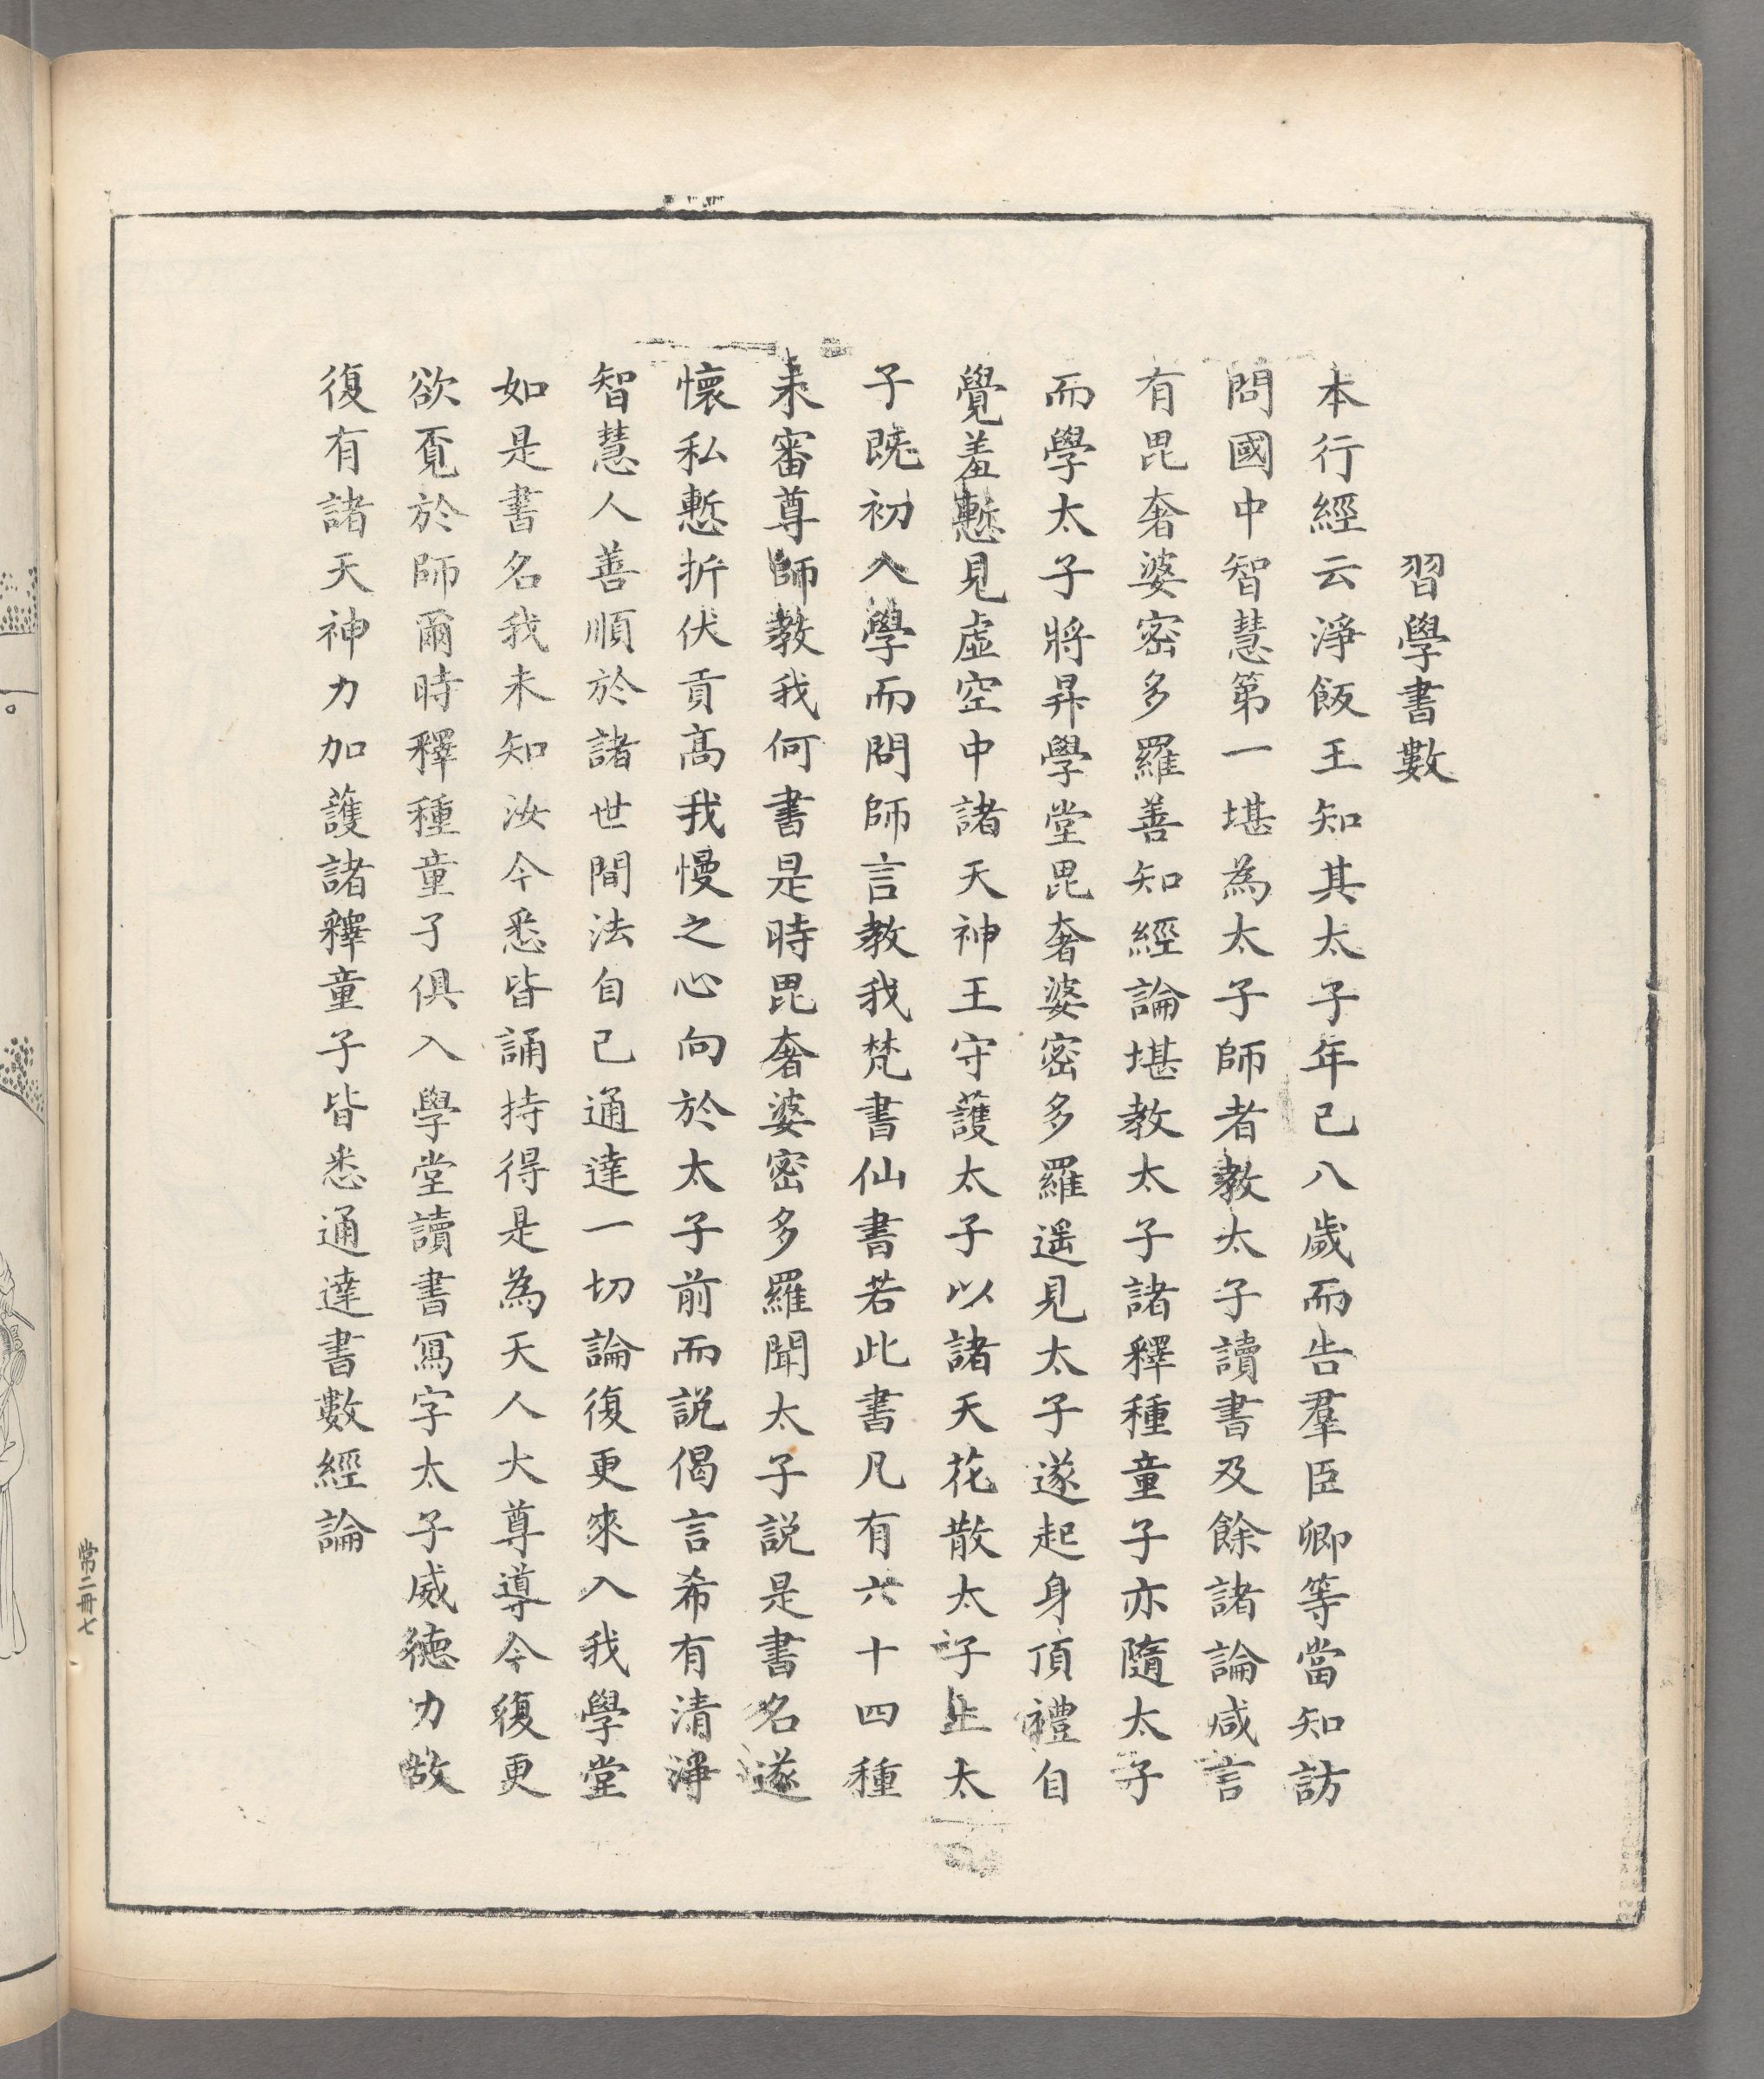 習學書數
本行經云淨飯王知其太子年已八歲而告羣臣卿等當知訪
問國中智慧第一堪為太子師者教太子讀書及餘諸論咸言
有毘奢婆密多羅善知經論堪教太子諸釋種童子亦隨太子
而學太子將昇學堂毘奢婆密多羅遥見太子遂起身頂禮自
覺羞慙見虛空中諸天神王守護太子以諸天花散太子上太
子既初入學而問師言教我梵書仙書若此書凡有六十四種
未審尊師教我何書是時毘奢婆密多羅聞太子説是書名遂
懷私慙折伏貢高我慢之心向於太子前而説偈言希有清淨
智慧人善順於諸世間法自己通達一切論復更來入我學堂
如是書名我未知汝今悉皆誦持得是為天人大尊導今復更
欲覓於師爾時釋種童子俱入學堂讀書寫字太子威德力故
復有諸天神力加護諸釋童子皆悉通達書數經論
常二冊七